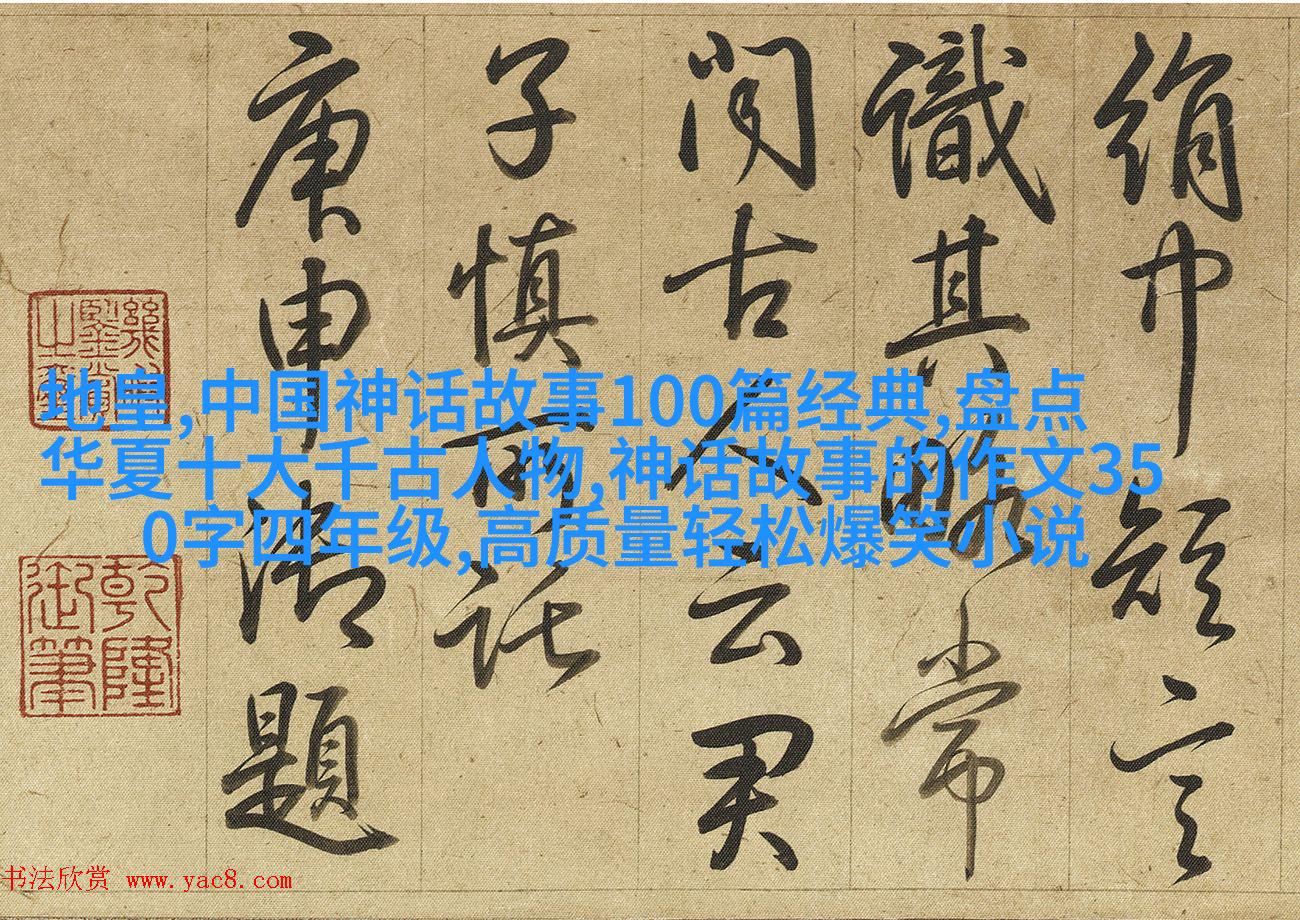 絹短言
識其略常
聞古人云君
子慎所託
庚申御題
乾隆
御筆
地皇,中国神话故事100篇经典,盘点
华夏十大千古人物,神话故事的作文35
0字四年级,高质量轻松爆笑小说
书法欣赏 www.yac8.com